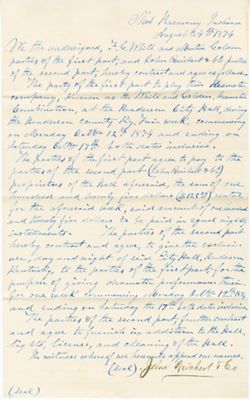 New Harmony, Indiana
August 24th 1874
We the undersigned, F. G. White and Martin Golden
parties of the first part and John Reichert & Co. parties
of the second part, hereby contract and agree as follows.
The party of the first part to play their dramatic
company, known as the White and Golden, Family
Combination, at the Henderson City Hall, during
the Henderson County Ky. Fair week, commencing
on Monday Octber 12th 1874 and ending on
Saturday Octber 17th both dates inclusive.
The parties of the first part agree to pay to the
parties of the second part (John Reichert & Co.)
proprietors of the Hall aforesaid, the sum of one
hundred and twenty five dollars ($125.00) rental
for the aforesaid week, said sum of one hundred
and twenty five dollars to be paid in equal nightly
installments. The parties of the second part
hereby contract and agree, to give the exclusive
use, day and night of said City Hall, Henderson
Kentucky, to the parties of the first part, for the
purpose of giving dramatic performances therein
for one week commencing Monday Octber 12th 1874
and ending on Saturday the 17th both dates inclusive.
The parties of the second part, further contract
and agree to furnish in addition to the Hall,
lights, License, and cleaning of the Hall.
In witness whereof we hereunto append our names,
(seal) John Reichert & Co
(seal)